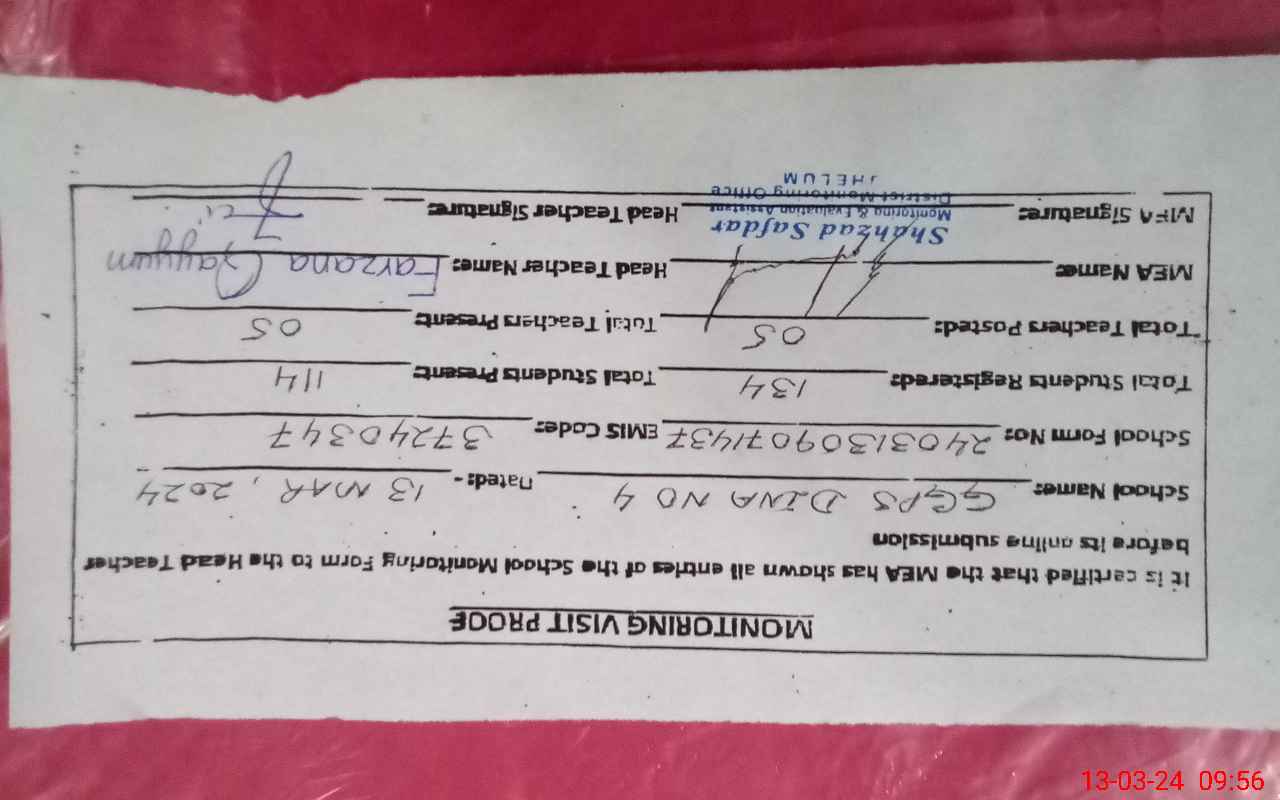 MONITORING VISIT PROOF
It is certified that the MEA has shown all entries of the School Monitoring Form to the Head Teacher
before its online submission
School Name: GGPS DINA NO 4 Dated:- 13 MAR, 2024
School Form No: 24031309071437 EMIS Code: 37240347
Total Students Registered: 134 Total Students Present: 114
Total Teachers Posted: 05 Total Teachers Present: 05
MEA Name: Head Teacher Name: Farzana Qayyum
MEA Signature: Head Teacher Signature:
Shahzad Safdar
Monitoring & Evaluation Assistant
District Monitoring Office
JHELUM
13-03-24 09:56